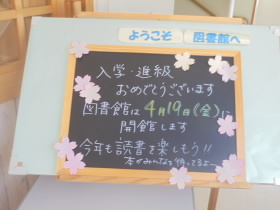 ようこそ 図書館へ
入学・進級
おめでとうございます
図書館は4月19日(金)に
開館します
今年も読書を楽しもう!!
本がみんなを待ってるよ〜